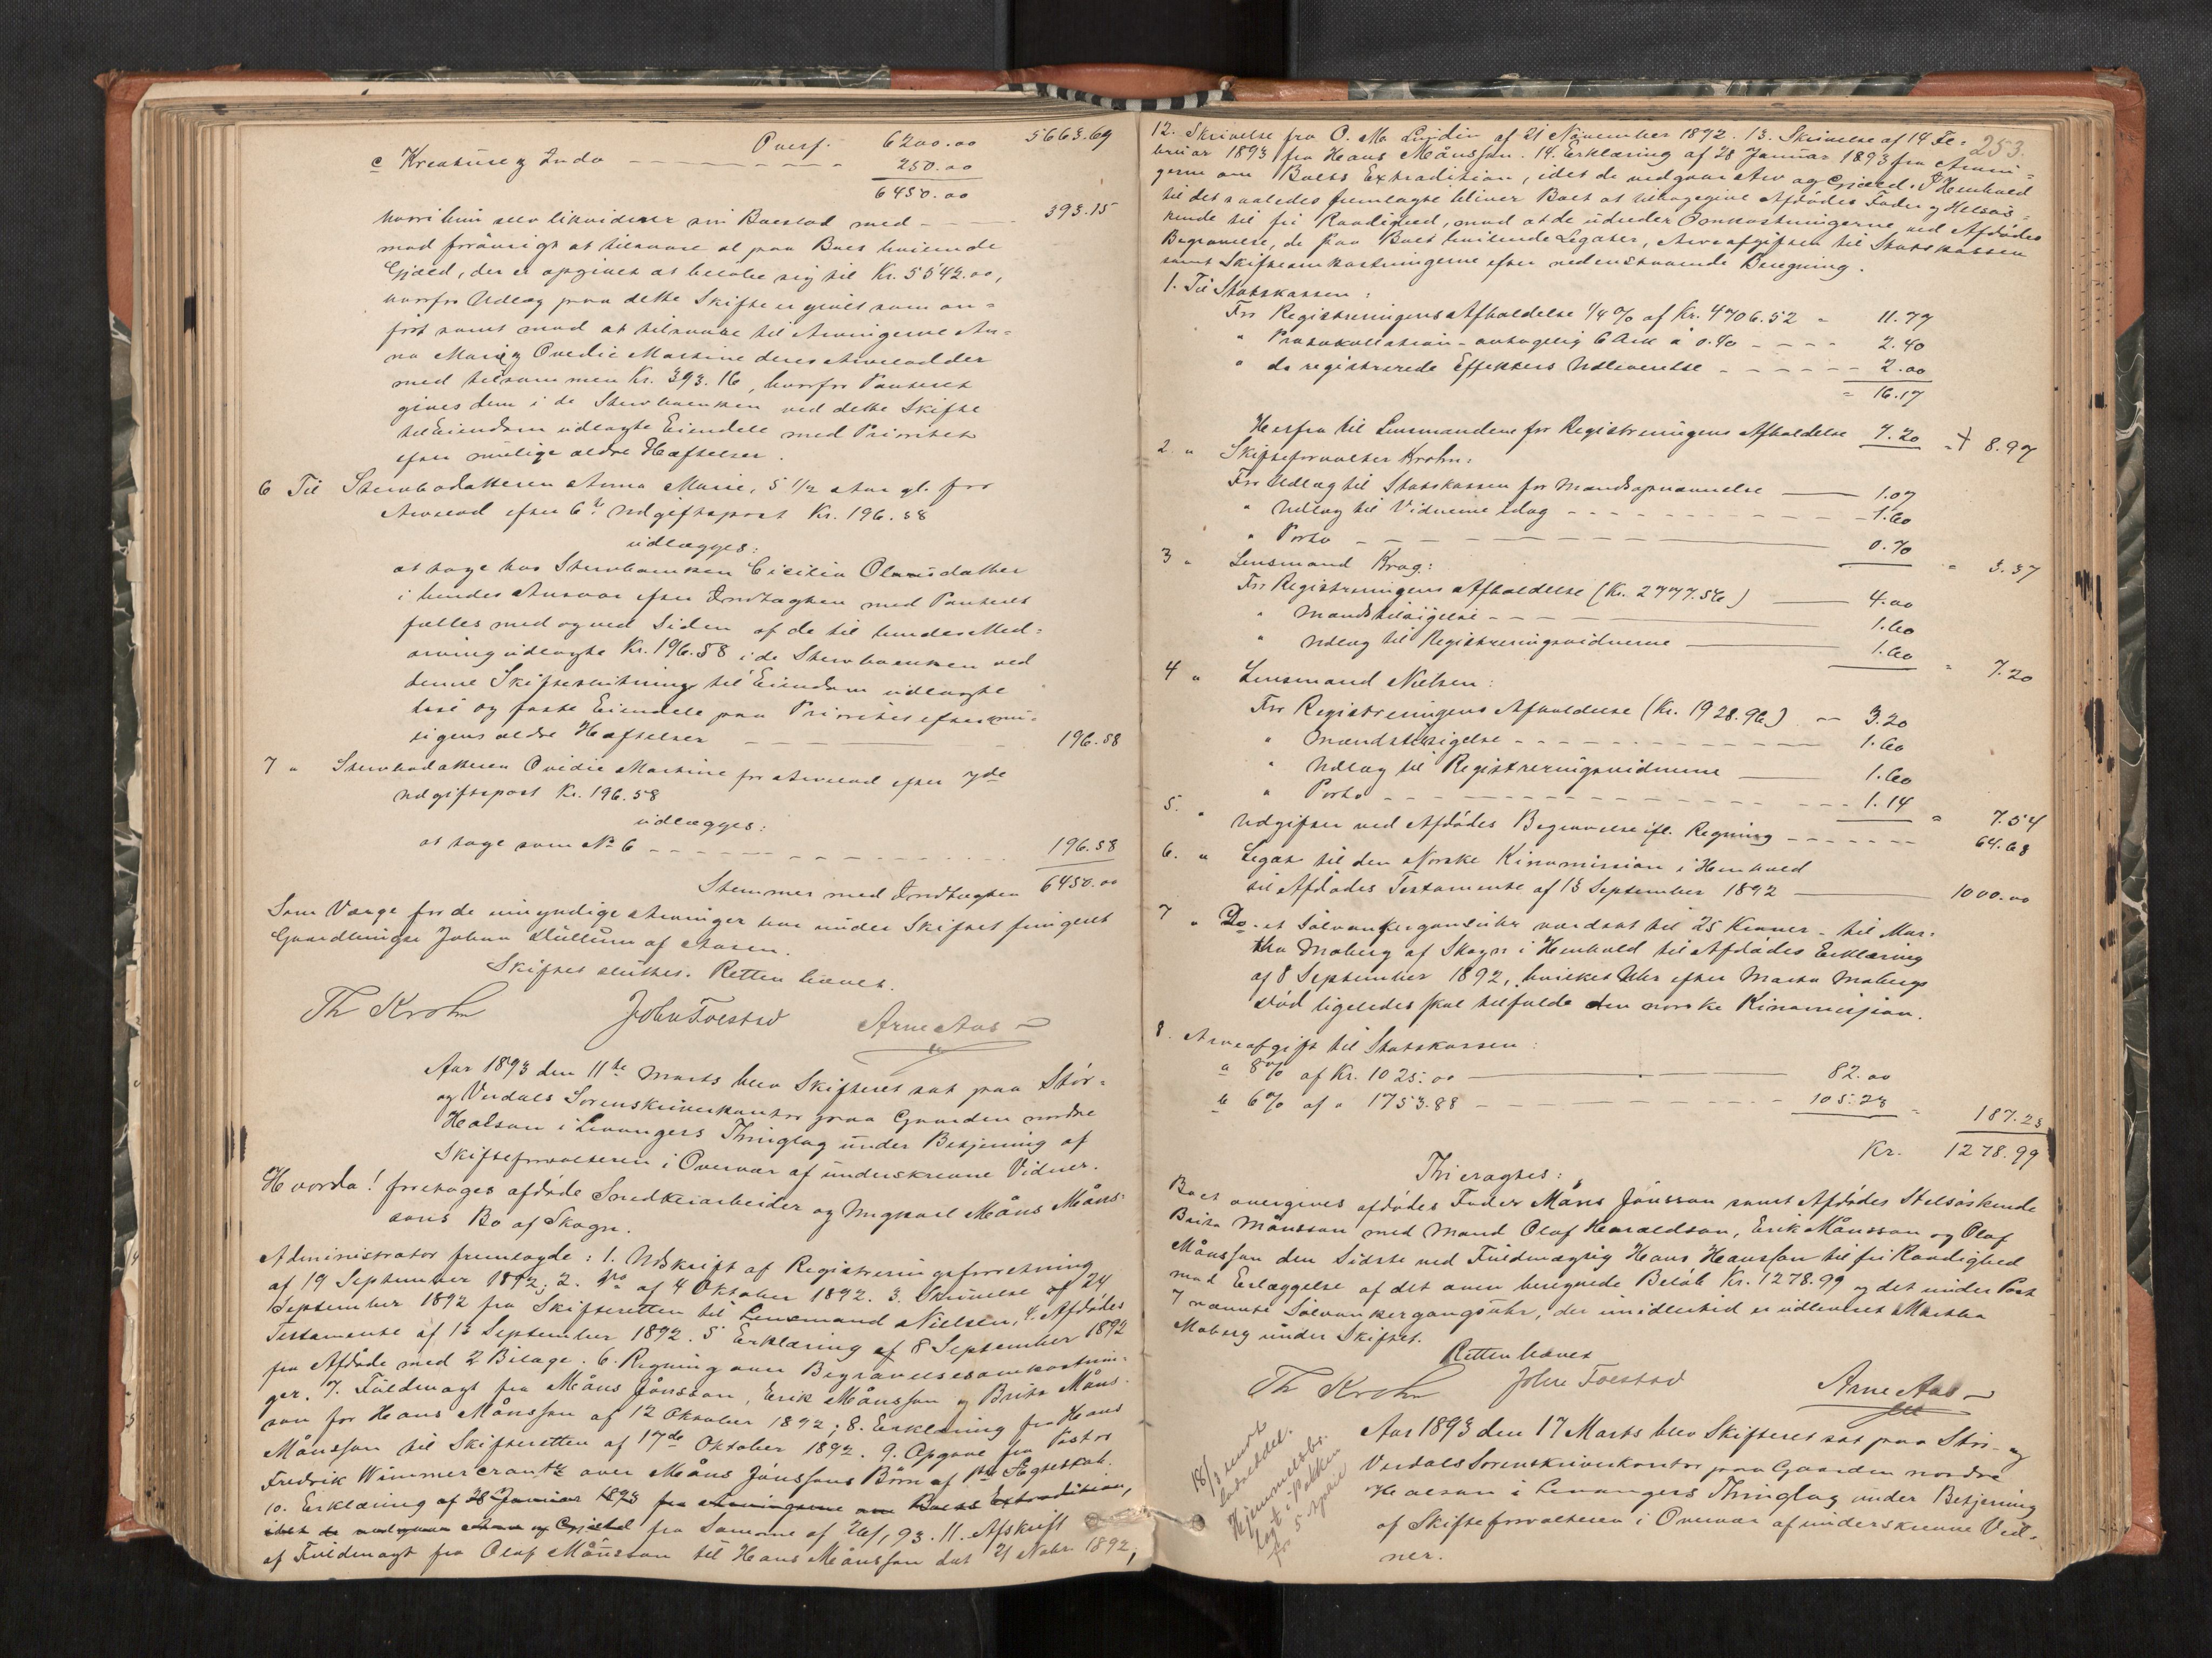 Overf. 6200.00 5663.69
c Kreature og Indbo 250.00
6450.00
hvori hun selv likviderer sin Boeslod med 393.15
mod forøvrigt at tilsvare al paa Boet hvilende
Gjæld, der er opgivet at beløbe sig til Kr. 5542.00,
hvorfor Udlæg paa dette Skifte er givet som an-
ført samt mod at tilsvare til Arvingerne An-
na Marie og Ovedie Martine deres Arvelodder
med tilsammen Kr. 393.16, hvorfor Panteret
gives dem i de Stervboenken ved dette Skifte
til Eiendom udlagte Eiendele med Prioritet
efter mulige ældre Hæftelser.
6 Til Stervbodatteren Anna Marie, 5 1/2 Aar gl. for
Arvelod efter 6te Udgiftspost Kr. 196.58
udlægges:
at tage hos Stervboenken Cicilia Olausdatter
i hendes Ansvar efter Indtægten med Panteret
fælles med og ved Siden af de til hendes Med-
arving udlagte Kr. 196.58 i de Stervboenken ved
denne Skifteslutning til Eiendom udlagte
løse og faste Eiendele paa Prioritet efter mu-
ligens ældre Hæftelser 196.58
7 " Stervbodatteren Ovidie Martine for Arvelod efter 7de
Udgiftspost Kr. 196.58
udlægges:
at tage som No 6 196.58
Stemmer med Indtægten 6450.00
Som Værge for de umyndige Arvinger har under Skiftet fungeret
Gaardbruger Johan Hullum af Aasen.
Skiftet sluttet. Retten hævet.
Th Krohn John Foestad Arne Aas
Aar 1893 den 11te Marts blev Skifteret sat paa Stør-
og Verdals Sorenskriverkontor paa Gaarden nordre
Halsan i Levangers Thinglag under Betjening af
Skifteforvalteren i Overvær af underskrevne Vidner.
Hvorda! foretoges afdøde Snedkerarbeider og Ungkarl Måns Måns-
sons Bo af Skogn.
Administrator fremlagde: 1. Udskrift af Registreringsforretning
af 19 September 1892; 2. Do af 4 Oktober 1892. 3. Skrivelse af 24
September 1892 fra Skifteretten til Lensmand Nielsen, 4. Afdødes
Testamente af 13 September 1892. 5 Erklæring af 8 September 1892
fra Afdøde med 2 Bilage. 6. Regning over Begravelsesomkostnin-
ger. 7. Fuldmagt fra Måns Jönsson, Erik Månsson og Brita Måns-
son for Hans Månsson af 12 Oktober 1892; 8. Erklæring fra Hans
Månsson til Skifteretten af 17de Oktober 1892. 9. Opgave fra Pastor
Fredrik Wimmercrantz over Måns Jönssons Börn af 1ste Ægteskab.
10. Erklæring af 28 Januar 1893 fra Arvingerne om Boets Extradition,
idet de vedgaar Arv og Gjæld fra Samme af 26/1 93. 11. Afskrift
af Fuldmagt fra Olof Månsson til Hans Månsson dat 21 Nobr 1892,
253.
12. Skrivelse fra O. M. Lundin af 21 November 1892. 13. Skrivelse af 14 Fe-
bruar 1893 fra Hans Månsson. 14. Erklæring af 28 Januar 1893 fra Arvin-
gerne om Boets Extradition, idet de vedgaar Arv og Gjæld. I Henhold
til det saaledes fremlagte bliver Boet at tilbagegive Afdødes Fader og Helsøs-
kende til fri Raadighed, mod at de udreder Omkostningerne ved Afdødes
Begravelse, de paa Boet hvilende Legater, Arveafgiften til Statskassen
samt Skifteomkostningerne efter nedenstaaende Beregning.
1. Til Statskassen:
For Registreringens Afholdelse 1/4 % af Kr. 4706.52 11.77
" Protokollation - antagelig 6 Ark à 0.40 2.40
" de registrerede Effekters Udleverelse 2.00
16.17
Herfra til Lensmændene for Registreringens Afholdelse 7.20 8.97
2 " Skifteforvalter Krohn:
For Udlæg til Statskassen for Mandsopnævnelse 1.07
" Udlæg til Vidnerne idag 1.60
" Porto 0.70 3.37
3 " Lensmand Krag:
For Registreringens Afholdelse (Kr. 2777.56) 4.00
" Mandstilsigelse 1.60
" Udlæg til Registreringsvidnerne 1.60 7.20
4 " Lensmand Nielsen:
For Registreringens Afholdelse (Kr. 1928.96) 3.20
" Mandstilsigelse 1.60
" Udlæg til Registreringsvidnerne 1.60
" Porto 1.14 7.54
5. " Udgifter ved Afdødes Begravelse ifl. Regning 64.68
6. " Legat til den Norske Kinamission i Henhold
til Afdødes Testamente af 13 September 1892 1000.00
7 " Do - et Sølvankergangsuhr værdsat til 25 Kroner - til Mar-
tha Moberg af Skogn i Henhold til Afdødes Erklæring
af 8 September 1892, hvilket Uhr efter Marta Mobergs
Død ligeledes skal tilfalde den norske Kinamission.
8. Arveafgift til Statskassen:
a 8% af Kr. 1025.00 82.00
b 6% af " 1753.88 105.23 187.23
Kr. 1278.99
Thi eragtes:
Boet overgives afdødes Fader Måns Jönsson samt Afdødes Helsøskende
Brita Månsson med Mand Olof Haraldson, Erik Månsson og Olof
Månsson den Sidste ved Fuldmægtig Hans Hansson til fri Raadighed
mod Erlæggelse af det oven beregnede Beløb Kr. 1278.99 og det under Post
7 nævnte Sølvankergangsuhr, der imidlertid er udleveret Martha
Moberg under Skiftet.
Retten hævet
Th Krohn John Foestad Arne Aas
18/3 sendt
Lodseddel.
Hjemmelsbr.
lagt i Pakken
for 5 April
Aar 1893 den 17 Marts blev Skifteret sat paa Stør- og
Verdals Sorenskriverkontor paa Gaarden nordre
Halsan i Levangers Thinglag under Betjening
af Skifteforvalteren i Overvær af underskrevne Vid-
ner.